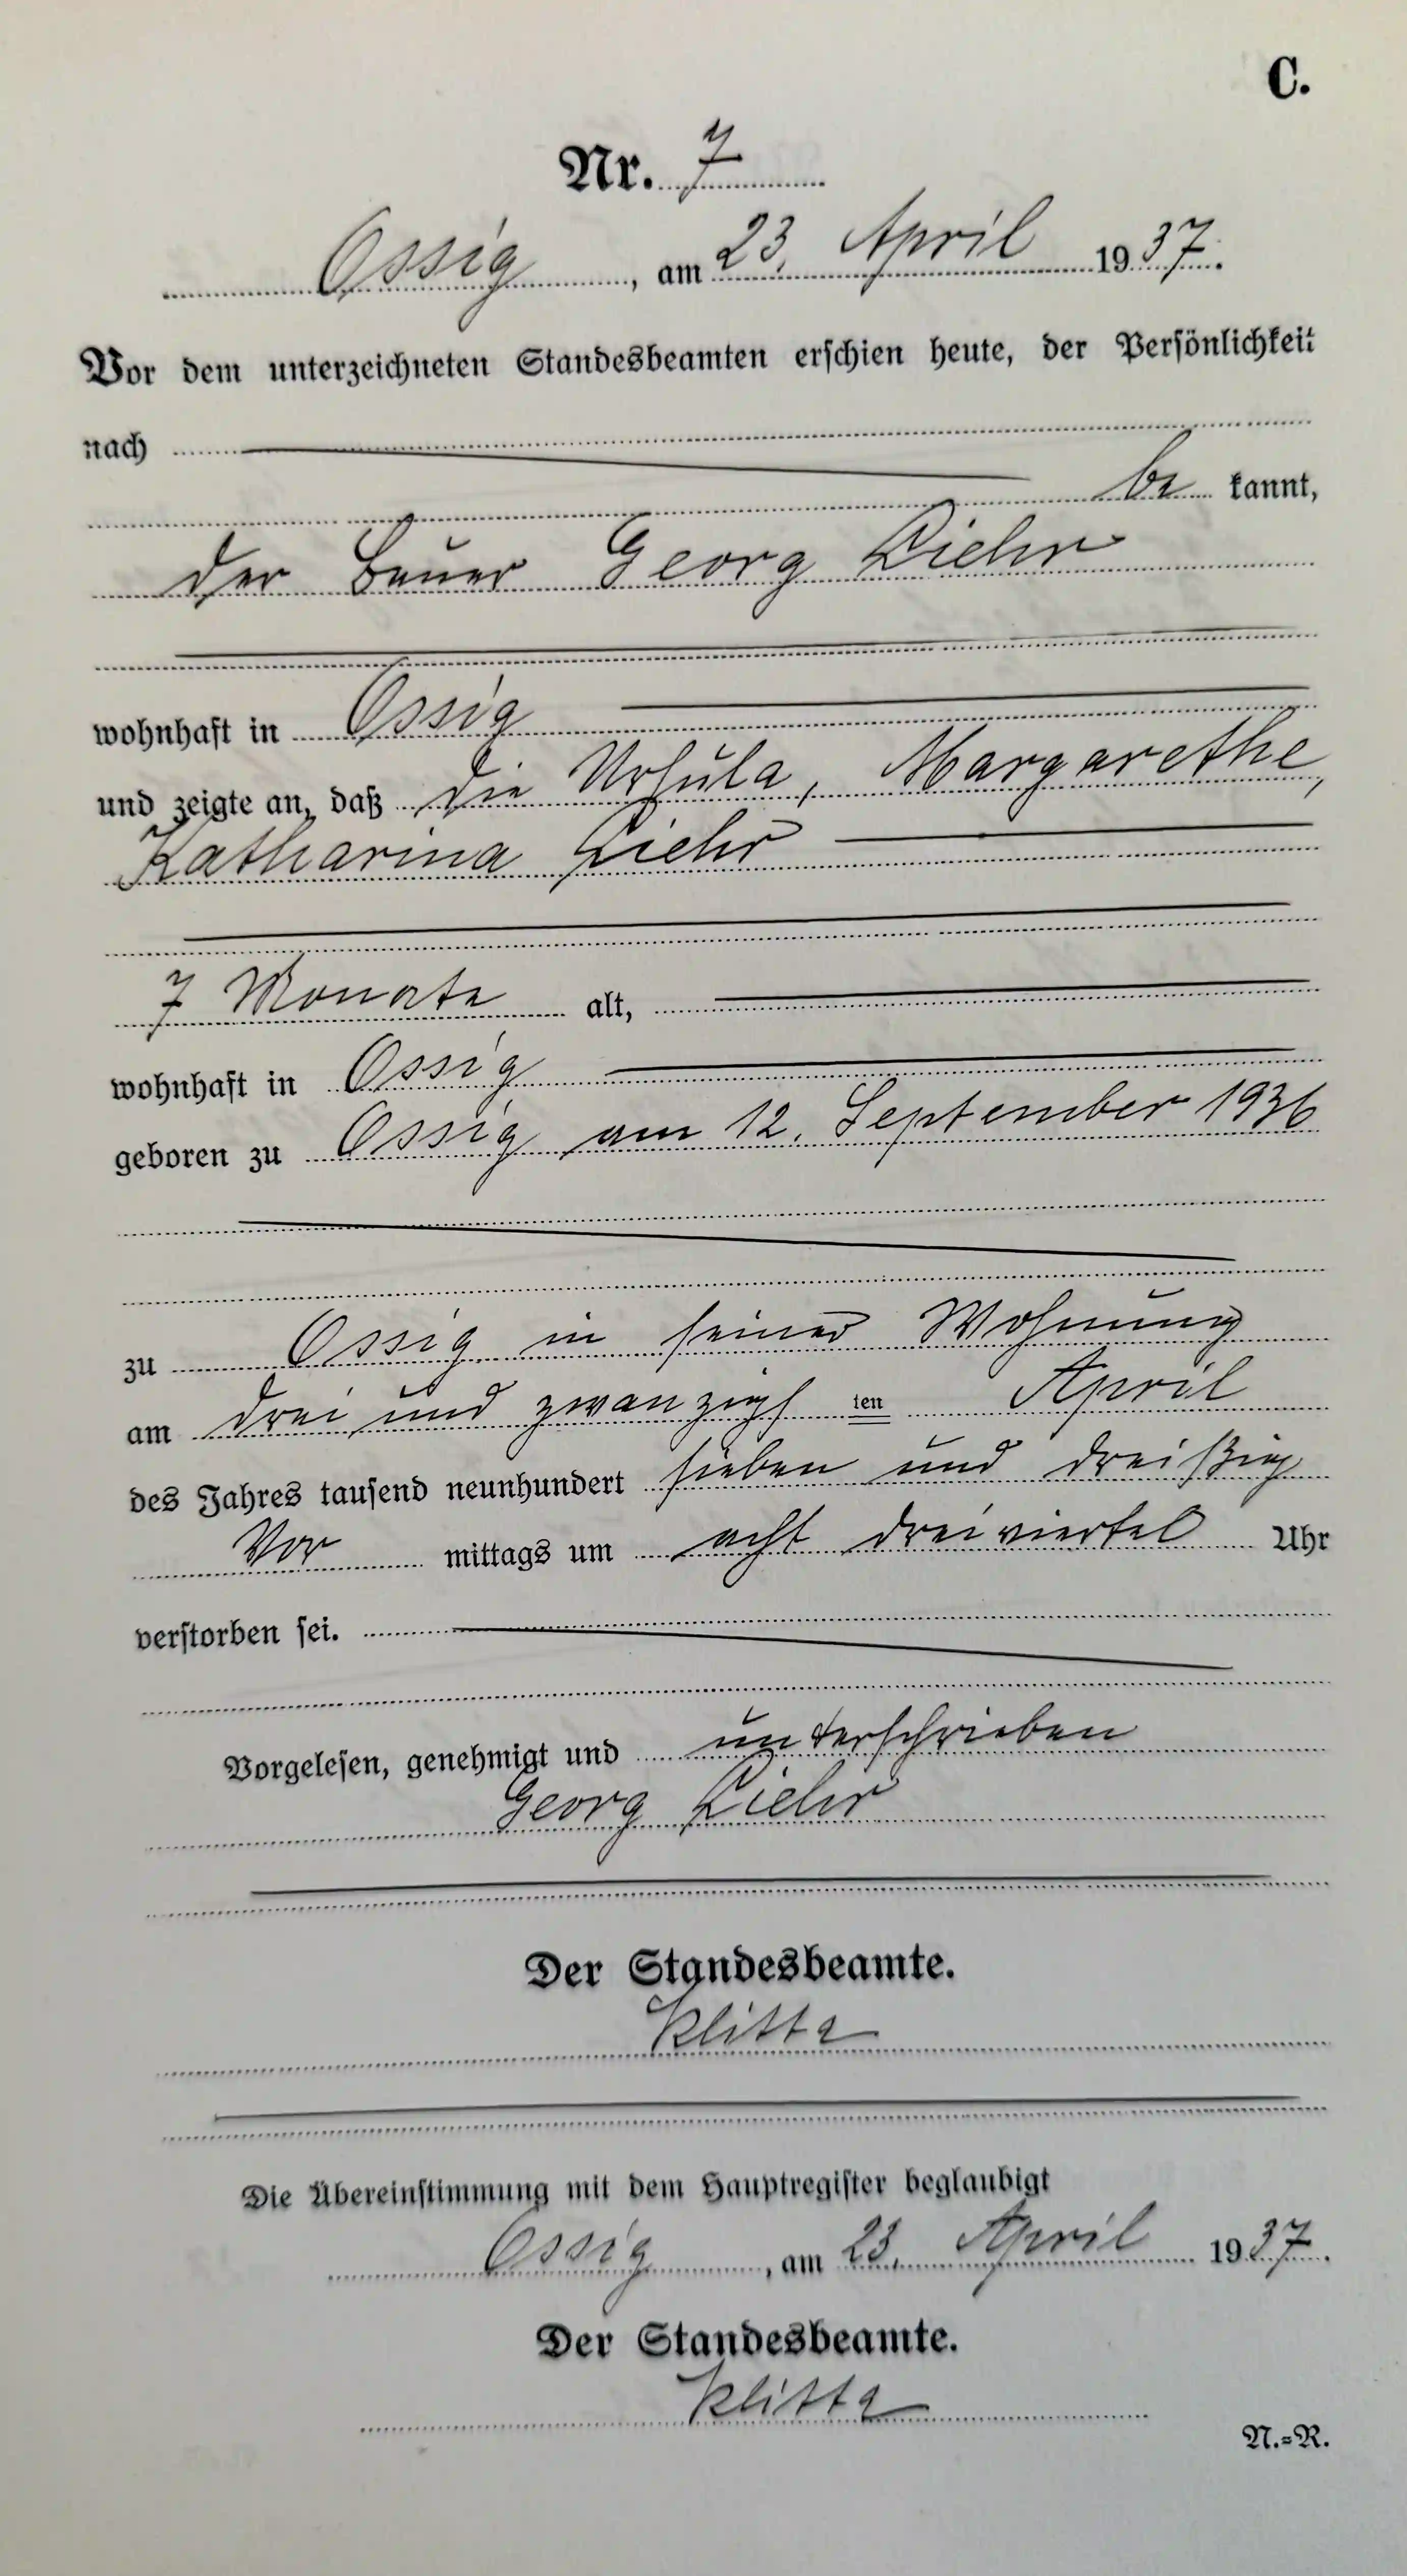 C.
Nr. 7
Ossig, am 23. April 1937.
Vor dem unterzeichneten Standesbeamten erschien heute, der Persönlichkeit
nach
be kannt,
der Bauer Georg Liehr
wohnhaft in Ossig
und zeigte an, daß die Ursula, Margarethe,
Katharina Liehr
7 Monate alt,
wohnhaft in Ossig
geboren zu Ossig am 12. September 1936
zu Ossig in seiner Wohnung
am drei und zwanzigs ten April
des Jahres tausend neunhundert sieben und dreißig
Vor mittags um acht dreiviertel Uhr
verstorben sei.
Vorgelesen, genehmigt und unterschrieben
Georg Liehr
Der Standesbeamte.
Klitta
Die Übereinstimmung mit dem Hauptregister beglaubigt
Ossig, am 23. April 1937.
Der Standesbeamte.
Klitta
N.=R.